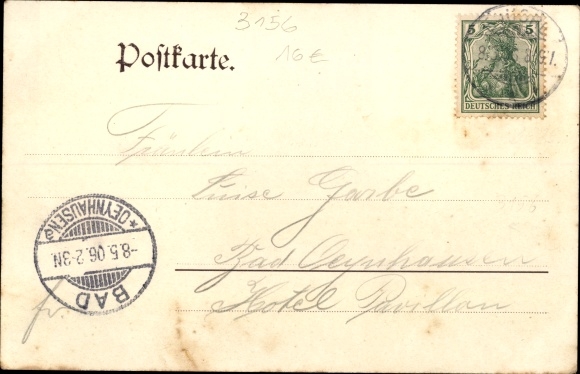 3156
16€
Postkarte.
5 5
DEUTSCHES REICH
Fräulein
Luise Garbe
Bad Oeynhausen
Hotel Pavillon
fr.
BAD
-8.5.06.2-3N
*OEYNHAUSEN a